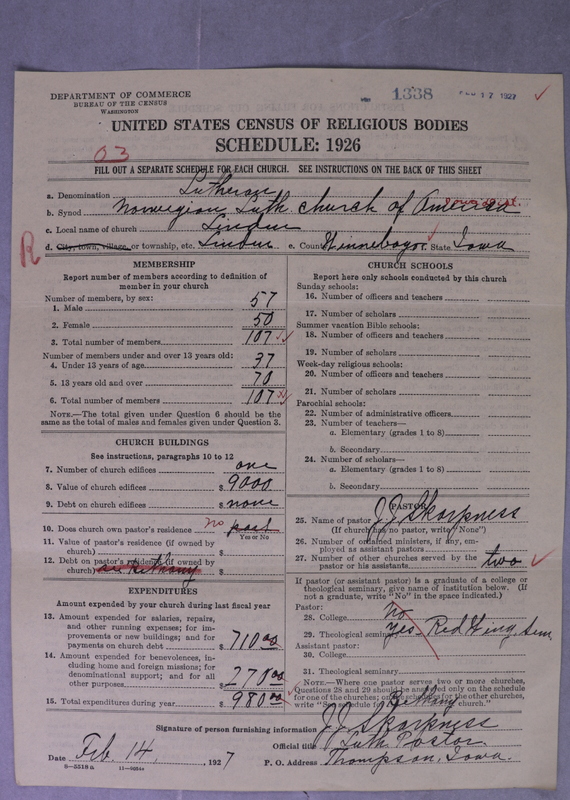 1338
FEB 17 1927
DEPARTMENT OF COMMERCE
BUREAU OF THE CENSUS
WASHINGTON
UNITED STATES CENSUS OF RELIGIOUS BODIES
SCHEDULE: 1926
03
FILL OUT A SEPARATE SCHEDULE FOR EACH CHURCH. SEE INSTRUCTIONS ON THE BACK OF THIS SHEET
a. Denomination Lutheran
b. Synod Norwegian Luth. Church of America
c. Local name of church Linden
R
d. City, town, village, or township, etc. Linden e. County Winnebago State Iowa
MEMBERSHIP
Report number of members according to definition of
member in your church
Number of members, by sex:
1. Male 57
2. Female 50
3. Total number of members 107
Number of members under and over 13 years old:
4. Under 13 years of age 37
5. 13 years old and over 70
6. Total number of members 107
NOTE.—The total given under Question 6 should be the
same as the total of males and females given under Question 3.
CHURCH BUILDINGS
See instructions, paragraphs 10 to 12
7. Number of church edifices one
8. Value of church edifices $ 9000
9. Debt on church edifices $ none
10. Does church own pastor's residence no part
Yes or No
11. Value of pastor's residence (if owned by
church) $
12. Debt on pastor's residence (if owned by
church) Bethany $
EXPENDITURES
Amount expended by your church during last fiscal year
13. Amount expended for salaries, repairs,
and other running expenses; for im-
provements or new buildings; and for
payments on church debt $ 710.00
14. Amount expended for benevolences, in-
cluding home and foreign missions; for
denominational support; and for all
other purposes $ 270.00
15. Total expenditures during year $ 980.00
CHURCH SCHOOLS
Report here only schools conducted by this church
Sunday schools:
16. Number of officers and teachers
17. Number of scholars
Summer vacation Bible schools:
18. Number of officers and teachers
19. Number of scholars
Week-day religious schools:
20. Number of officers and teachers
21. Number of scholars
Parochial schools:
22. Number of administrative officers
23. Number of teachers—
a. Elementary (grades 1 to 8)
b. Secondary
24. Number of scholars—
a. Elementary (grades 1 to 8)
b. Secondary
PASTOR
25. Name of pastor J.J. Skarpness
(If church has no pastor, write "None")
26. Number of ordained ministers, if any, em-
ployed as assistant pastors
27. Number of other churches served by the
pastor or his assistants two
If pastor (or assistant pastor) is a graduate of a college or
theological seminary, give name of institution below. (If
not a graduate, write "No" in the space indicated.)
Pastor:
28. College No
29. Theological seminary Yes. Red Wing Sem
Assistant pastor:
30. College
31. Theological seminary
NOTE.—Where one pastor serves two or more churches,
Questions 28 and 29 should be answered only on the schedule
for one of the churches; on schedules for the other churches,
write "See schedule for Bethany church."
Signature of person furnishing information J.J. Skarpness
Official title Luth Pastor
Date Feb. 14, 1927 P. O. Address Thompson, Iowa.
8—5518a 11—9034a